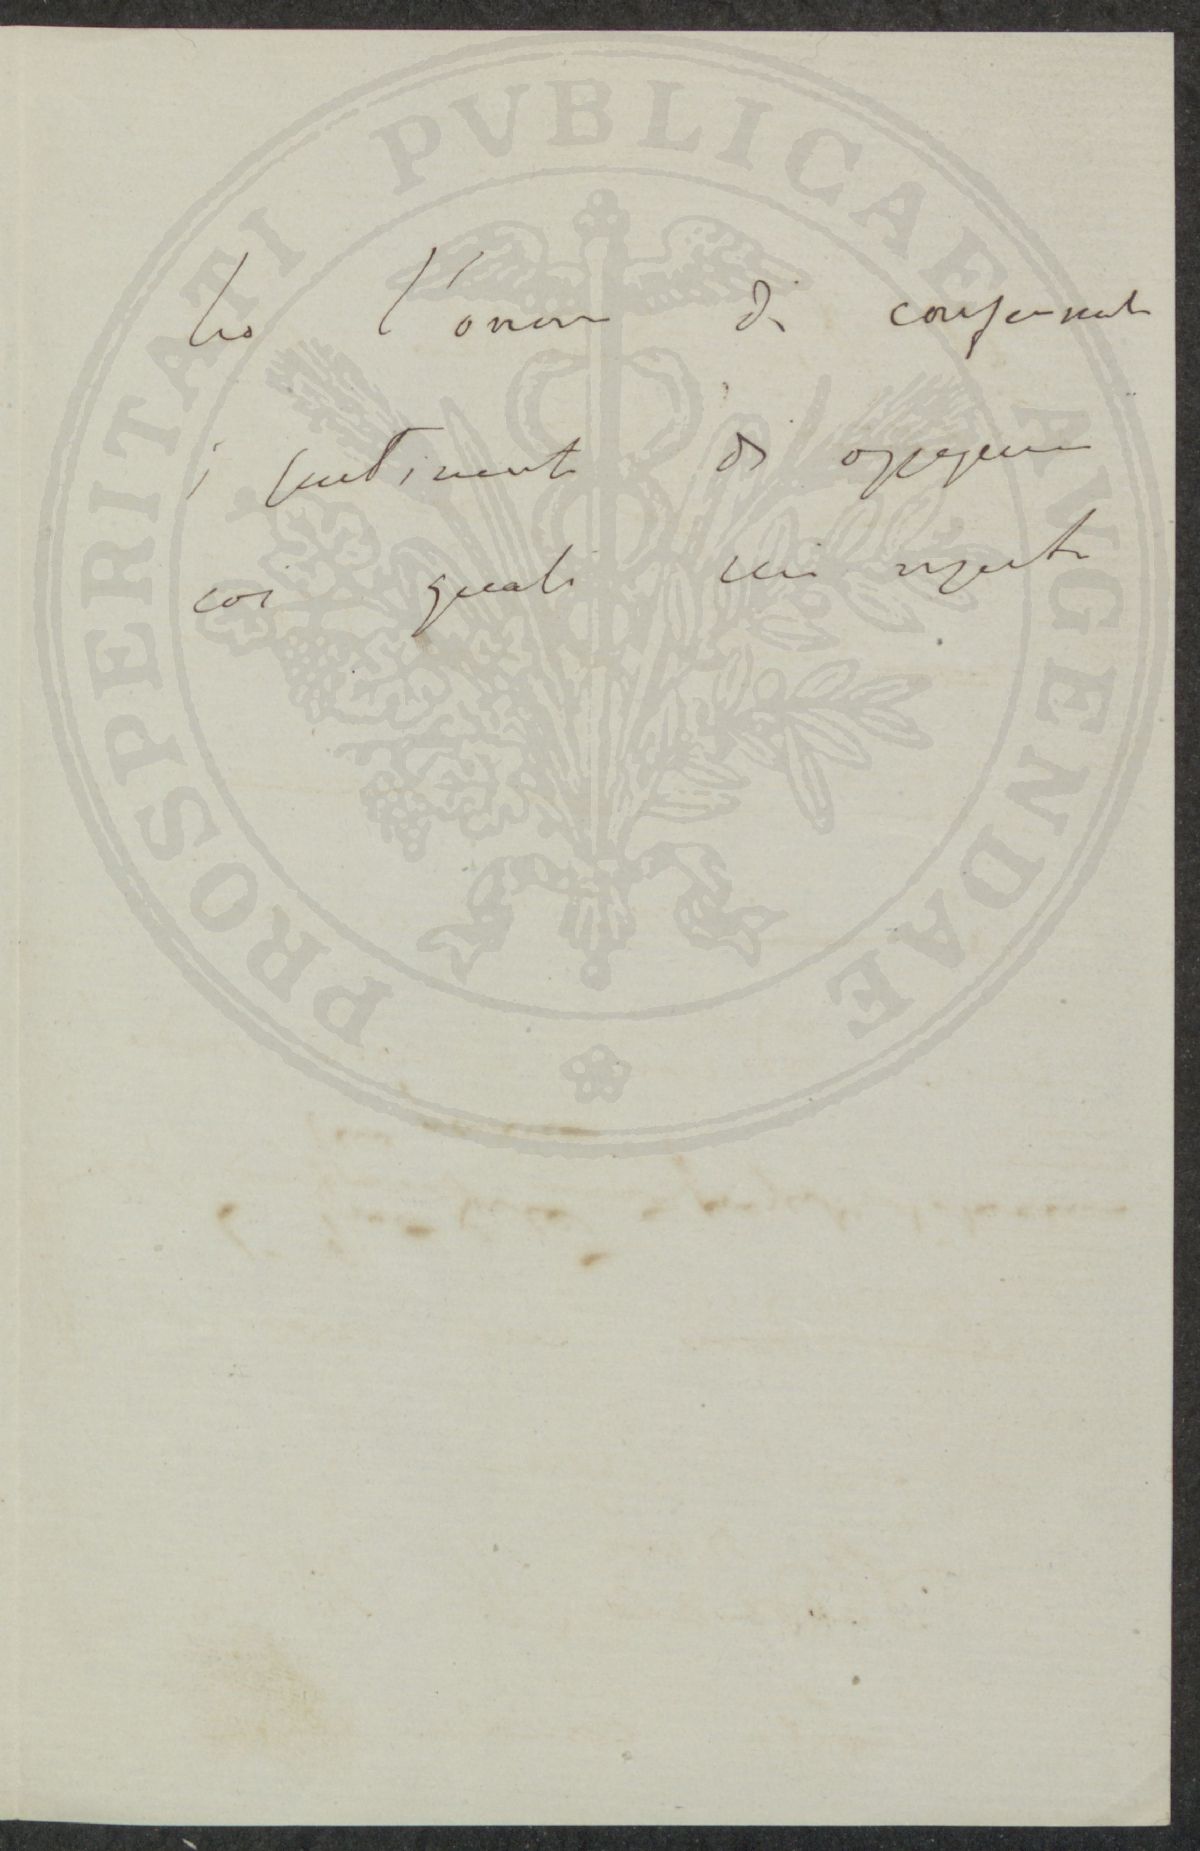 PROSPERITATI PUBLICAE AUGENDAE
ho l'onore di confermarle
i sentimenti di ossequio
coi quali mi